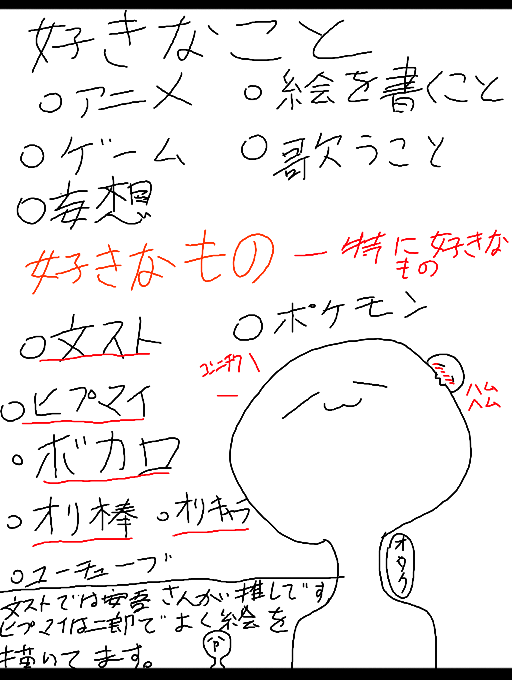 好きなこと
○アニメ ○絵を書くこと
○ゲーム ○歌うこと
○妄想
好きなもの ー特に好きなもの
○文スト ○ポケモン
○ヒプマイ
○ボカロ
○オリ棒 ○オリキャラ
○ユーチューブ
ハム
ヘム
オカク
文ストでは安吾さんが推しです
ヒプマイは二郎でよく絵を
描いてます。